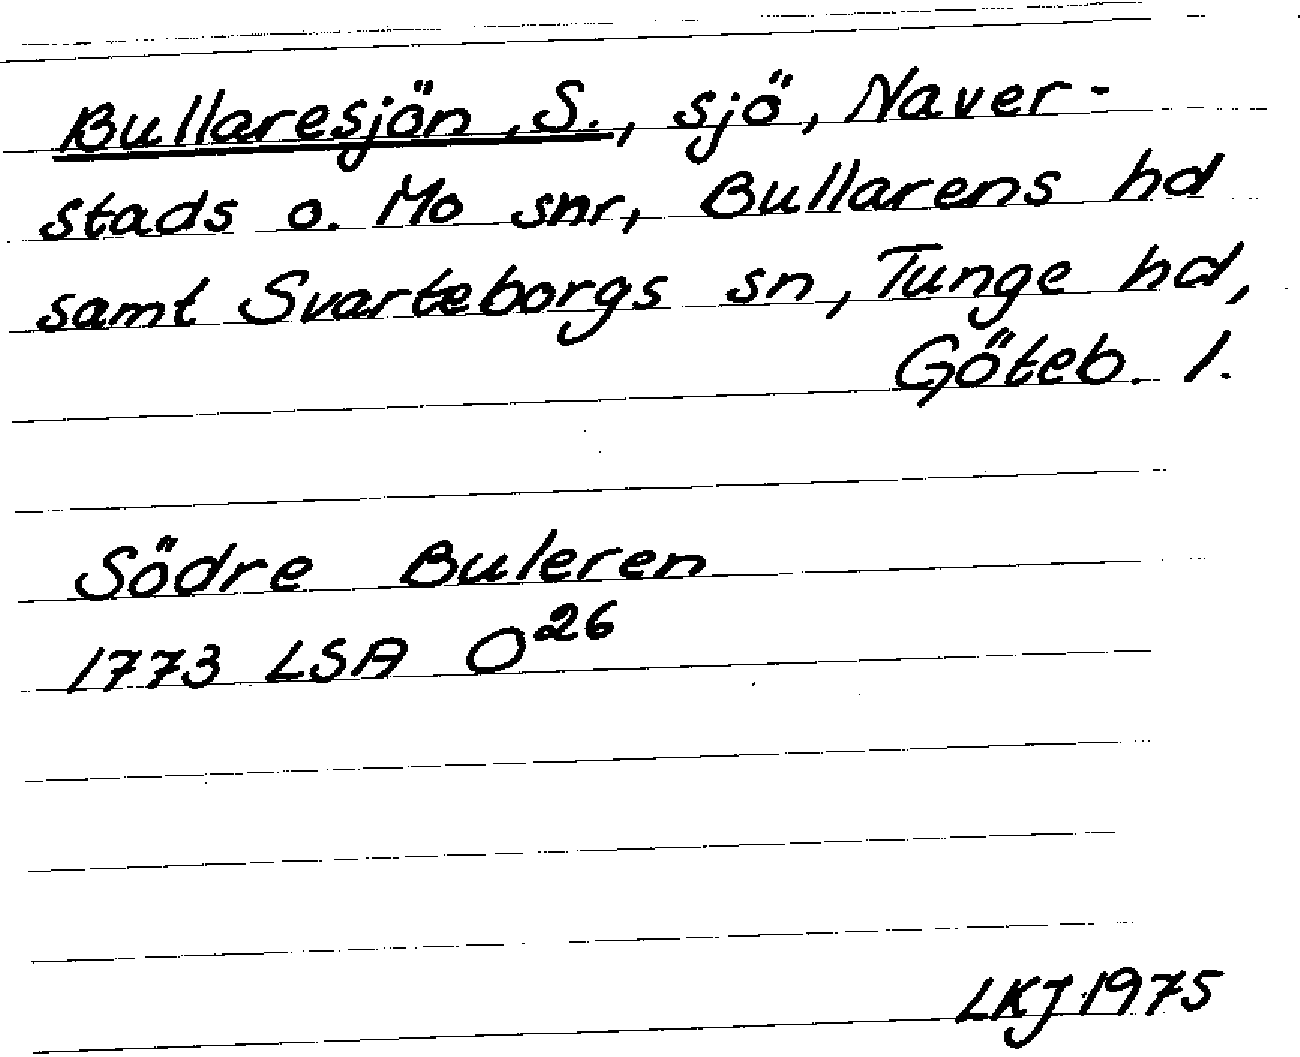 Bullaresjön, S., sjö, Naver-
stads o. Mo snr, Bullarens hd
samt Svarteborgs sn, Tunge hd,
Göteb. l.
Södre Buleren
1773 LSA O²⁶
LKJ 1975